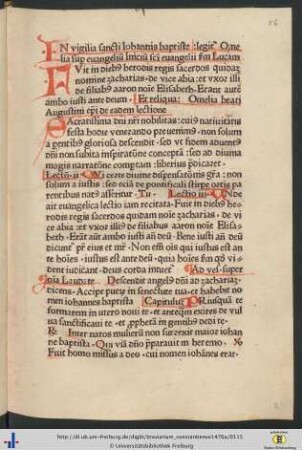 56
IN vigilia sancti Iohannis baptiste ·legit̃ Ome
lia sup euangeliũ Iniciũ sci euangelii scdm Lucam
Fvit in dieb9 herodis regis sacerdos quidaz
nomine zacharias· de vice abia· et vxor illi
de filiab9 aaron noīe Elisabeth· Erant autē
ambo iusti ante deum· Et reliqua· Omelia beati
Augustini ep̄i de eadem lectione
Sacratissima dn̄i nr̄i nobilitas· cui9 natiuitatis
festa hodie venerando preuenim9· non solum
a gentib9 gloriosa descendit· sed vt fidem aduert9
dn̄i non subita inspiratione concepta· sed ad diuina
magis narratione comptam· liberius poicaret·
Lectio ii·
non
solum a iustis· sed ex ea de pontificali stirpe ortis pa
rentibus nate9 asseritur· Tu· Lectio iii· Vnde
ait euangelica lectio iam recitata· Fuit in dieb9 he
rodis regis sacerdos quidam noīe zacharias· de vi
ce abia· et vxor illi de filiabus aaron noīe Elisa
beth· Erāt aūt ambo iusti an̄ deū· Bene iusti an̄ deū
dicunt̃ pr̄ eius et mr̄· Non em̄ ois qui iustus est an̄
te hoīes· iustus est ante deū· quia hoīes sm̄ qd vi
dent iudicant· deus corda intuet̃ Ad vesp̄ super
oīa Laudate Descendit angel9 dn̄i ad zachariaz·
dicens· Accipe puerz in senectute tua· et habebit no
men iohannes baptista Capitulum Priusquā te
formarem in vtero noui te· et anteqm̄ exires de vul
ua sanctificaui te· et ꝓphetā in gentib9 dedi te·
R Inter natos mulierū non surrexit maior iohan
ne baptista· Qui viā dn̄o p̄parauit in heremo· V
Fuit homo missus a deo· cui nomen iohānes erat·
http://dl.ub.uni-freiburg.de/diglit/breviarium_constantiense1476a/0111
© Universitätsbibliothek Freiburg